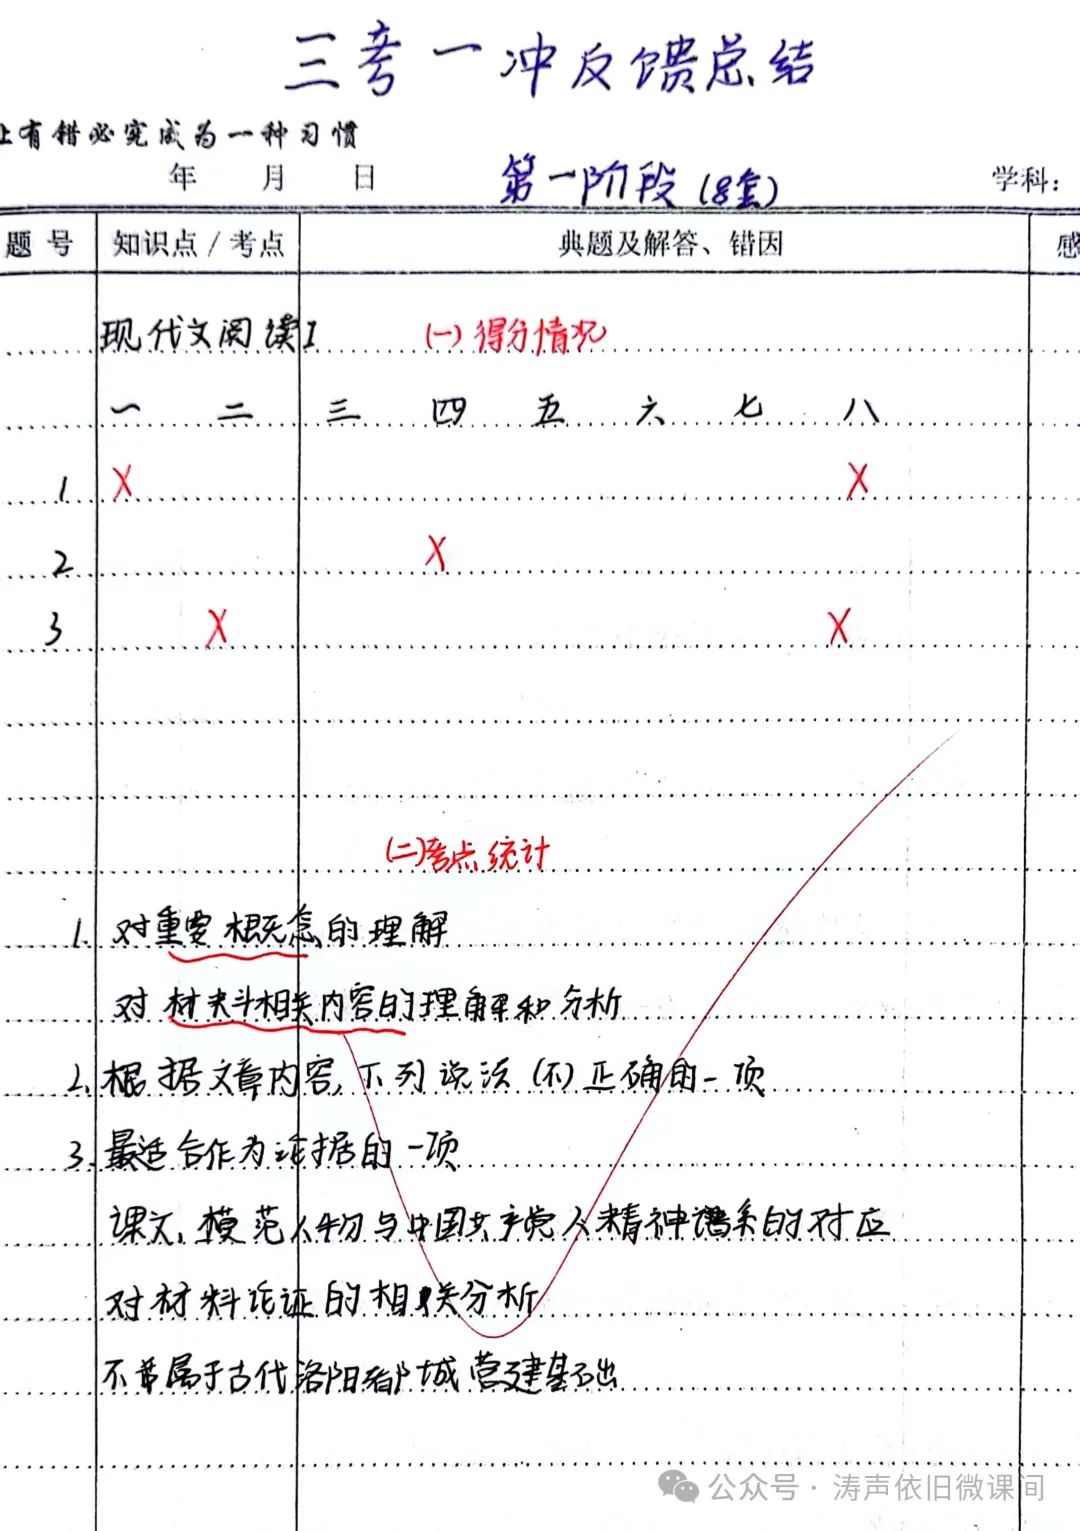 三考一冲反馈总结
让有错必究成为一种习惯
年 月 日 第一阶段（8套） 学科：
题号 知识点/考点 典题及解答、错因 感
现代文阅读I (一)得分情况
一 二 三 四 五 六 七 八
1 X X
2 X
3 X X
(二)考点统计
1. 对重要概念的理解
对材料相关内容的理解和分析
2. 根据文章内容,下列说法(不)正确的一项
3. 最适合作为论据的一项
课文、模范人物与中国共产党人精神谱系的对应
对材料论证的相关分析
不属于古代洛阳都城营建基础
公众号·涛声依旧微课间